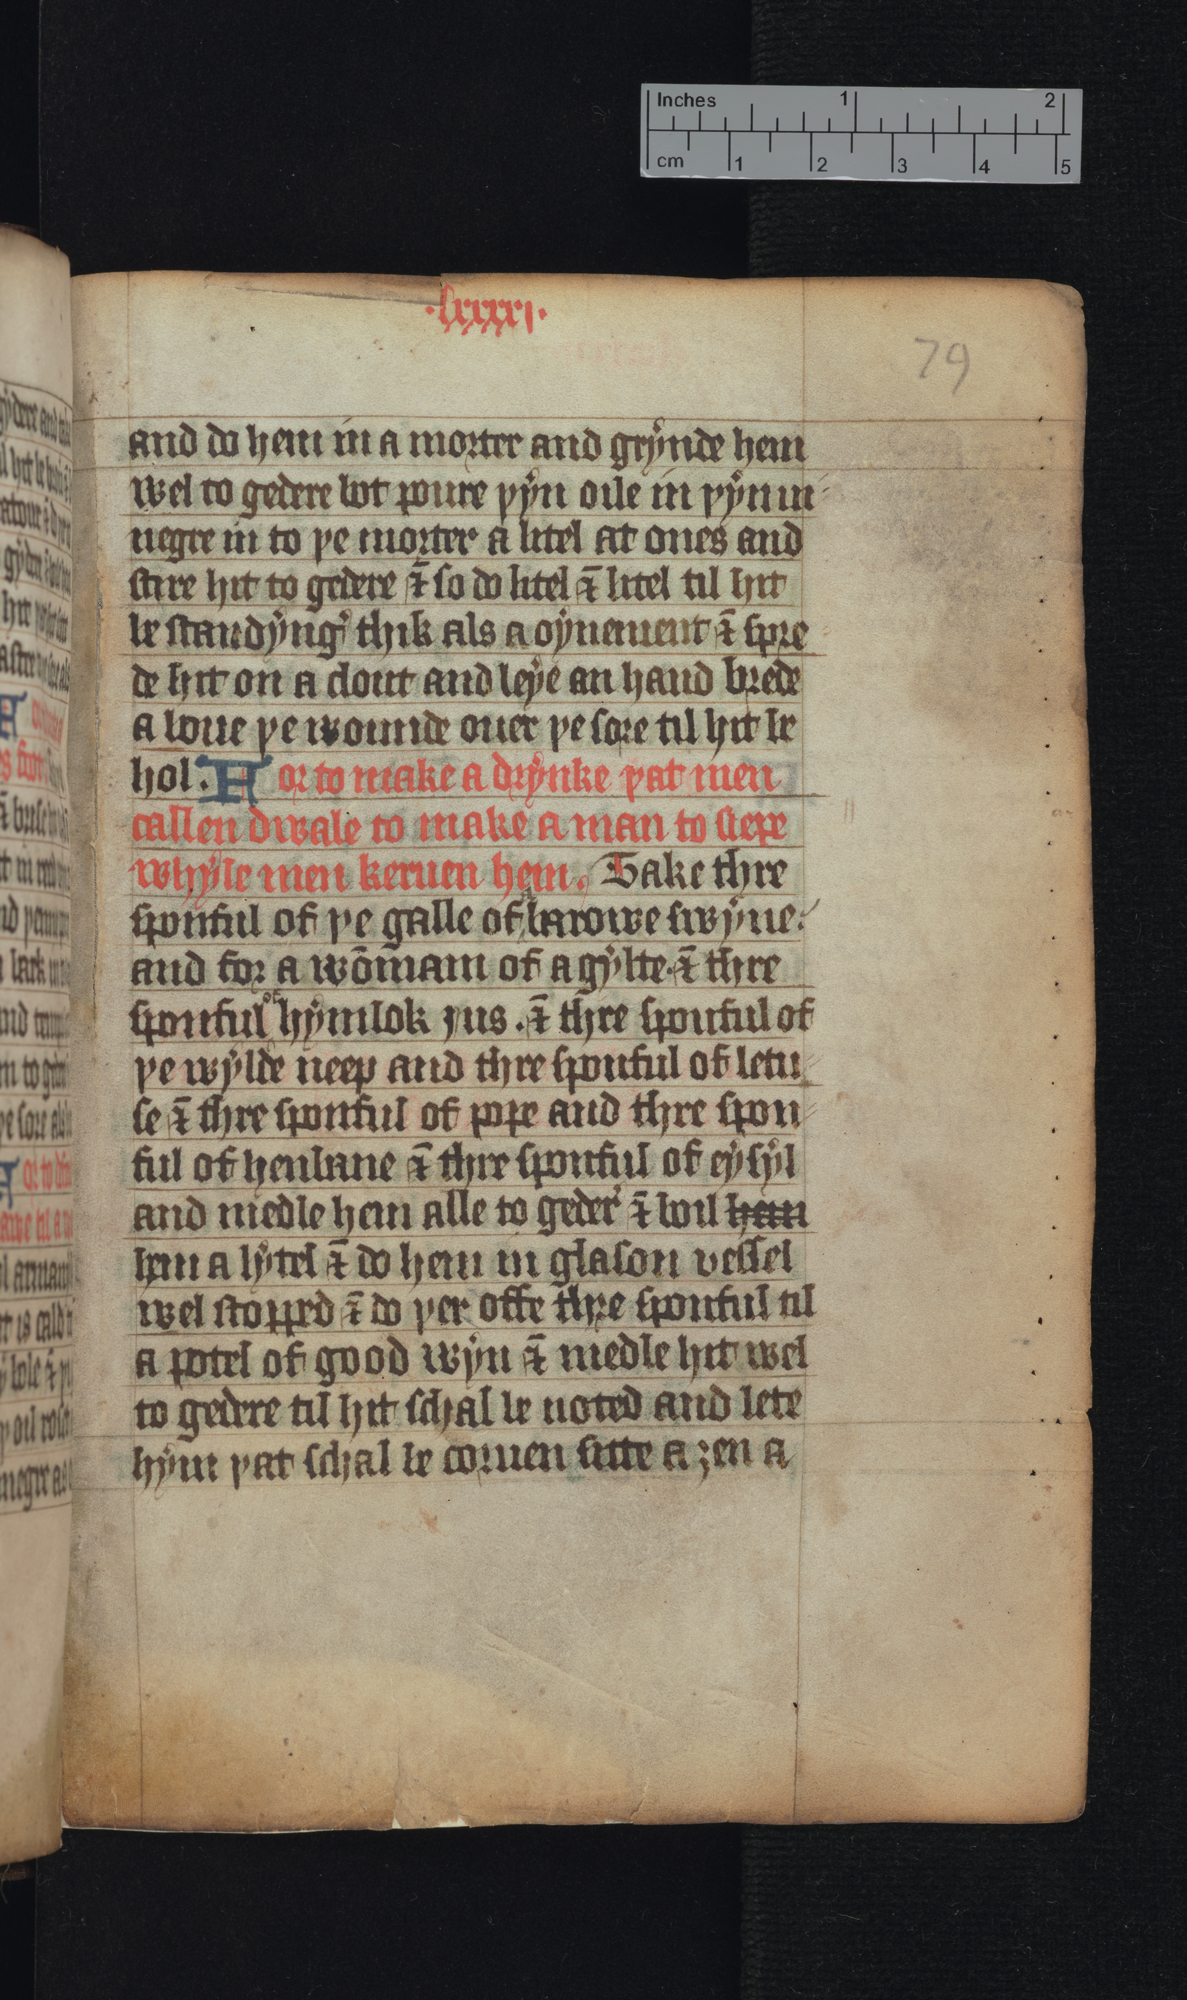 Inches 1 2
cm 1 2 3 4 5
.lxxxxj.
79
and do hem in a morter and grynde hem
wel to gedere bot poure þyn oile in þyn in
negre in to þe morter a litel at ones and
stire hit to gedere & so do litel & litel til hit
be standyng' thik als a oynement & spre
de hit on a clout and leye an hand brede
a boue þe wounde ouer þe sore til hit be
hol. For to make a drynke þat men
callen dwale to make a man to slepe
whyle men keruen hem. Take thre
sponful of þe galle of a barowe swyne.
and for a wōmam of a gylte. & thre
sponful of hymlok jus. & thre sponful of
þe wylde neep and thre sponful of letu
se & thre sponful of pope and thre spon
ful of henbane & thre sponful of eysyl
and medle hem alle to geder' & boil hem
hem a lytel & do hem in glason vessel
wel stopped & do þer offe thre sponful til
a potel of good wyn & medle hit wel
to gedere til hit schal be noted and lete
hym þat schal be coruen sitte a ȝen a